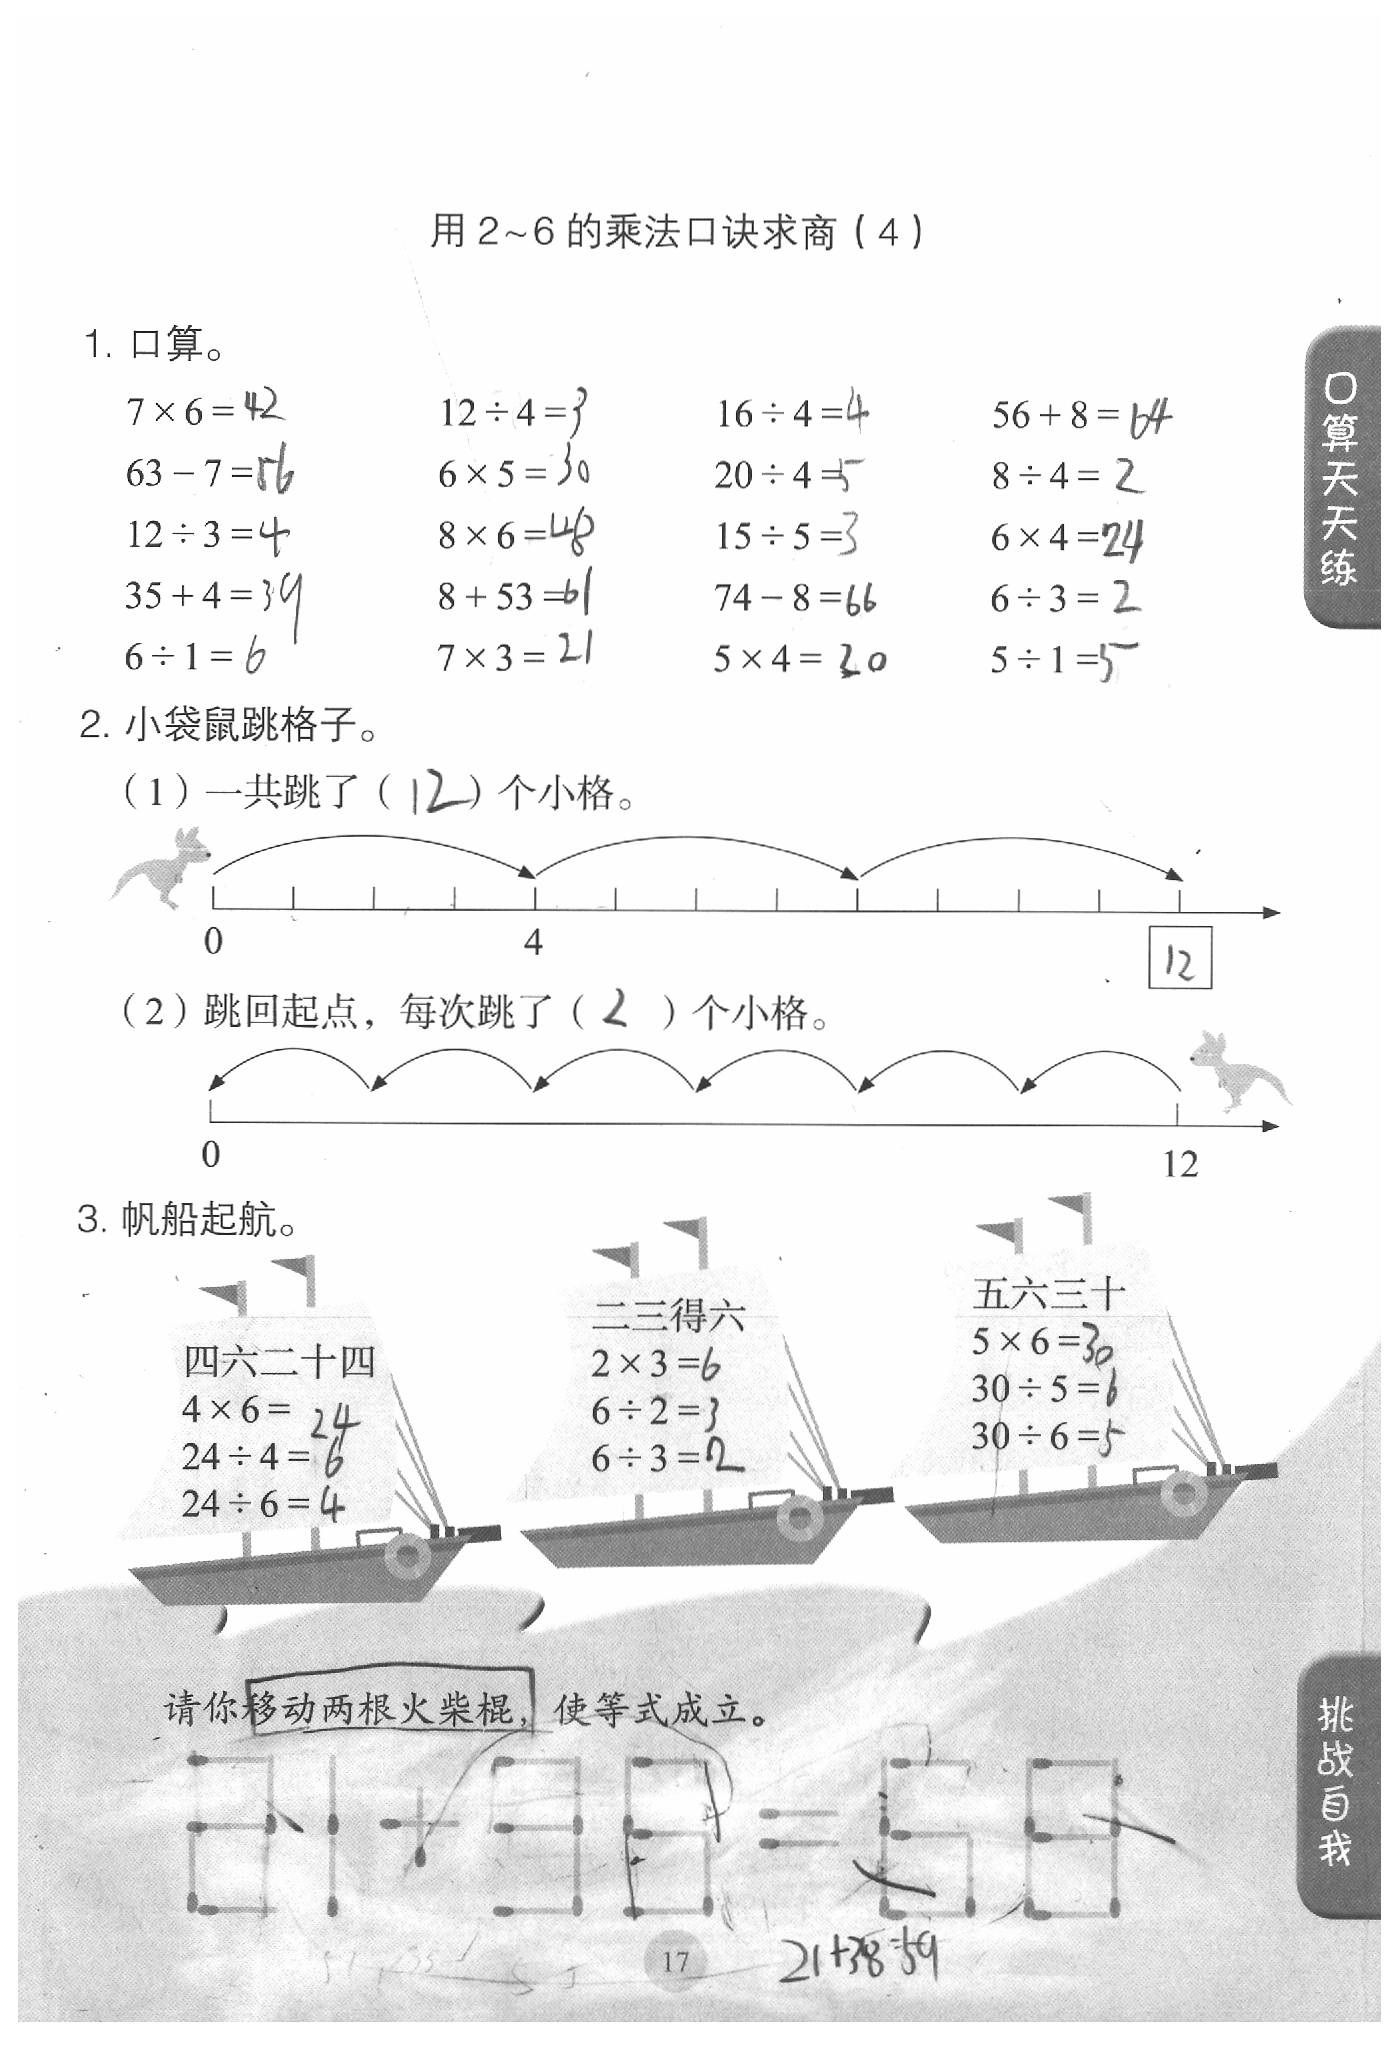 用2~6的乘法口诀求商(4)
1. 口算。
7×6=42 12÷4=3 16÷4=4 56+8=64
63-7=56 6×5=30 20÷4=5 8÷4=2
12÷3=4 8×6=48 15÷5=3 6×4=24
35+4=39 8+53=61 74-8=66 6÷3=2
6÷1=6 7×3=21 5×4=20 5÷1=5
2. 小袋鼠跳格子。
(1)一共跳了(12)个小格。
0 4 12
(2)跳回起点,每次跳了(2)个小格。
0 12
3. 帆船起航。
四六二十四
4×6=24
24÷4=6
24÷6=4
二三得六
2×3=6
6÷2=3
6÷3=2
五六三十
5×6=30
30÷5=6
30÷6=5
请你移动两根火柴棍,使等式成立。
21+38=59
17
口算天天练
挑战自我